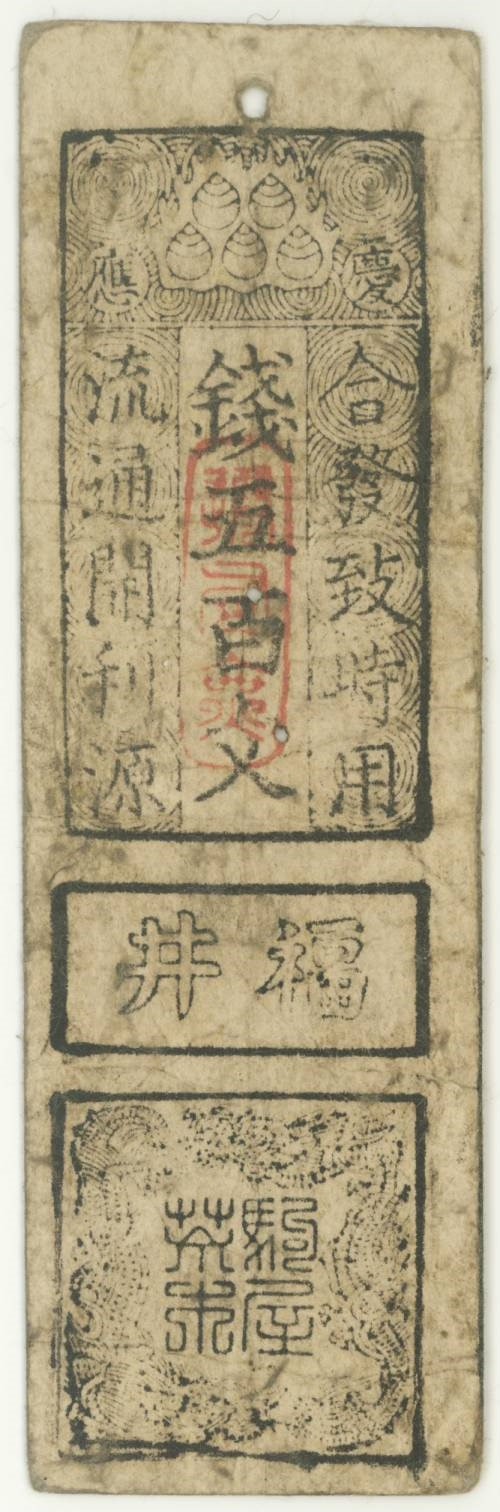 慶應
合發致時用
錢五百文
流通開利源
福井
駒屋